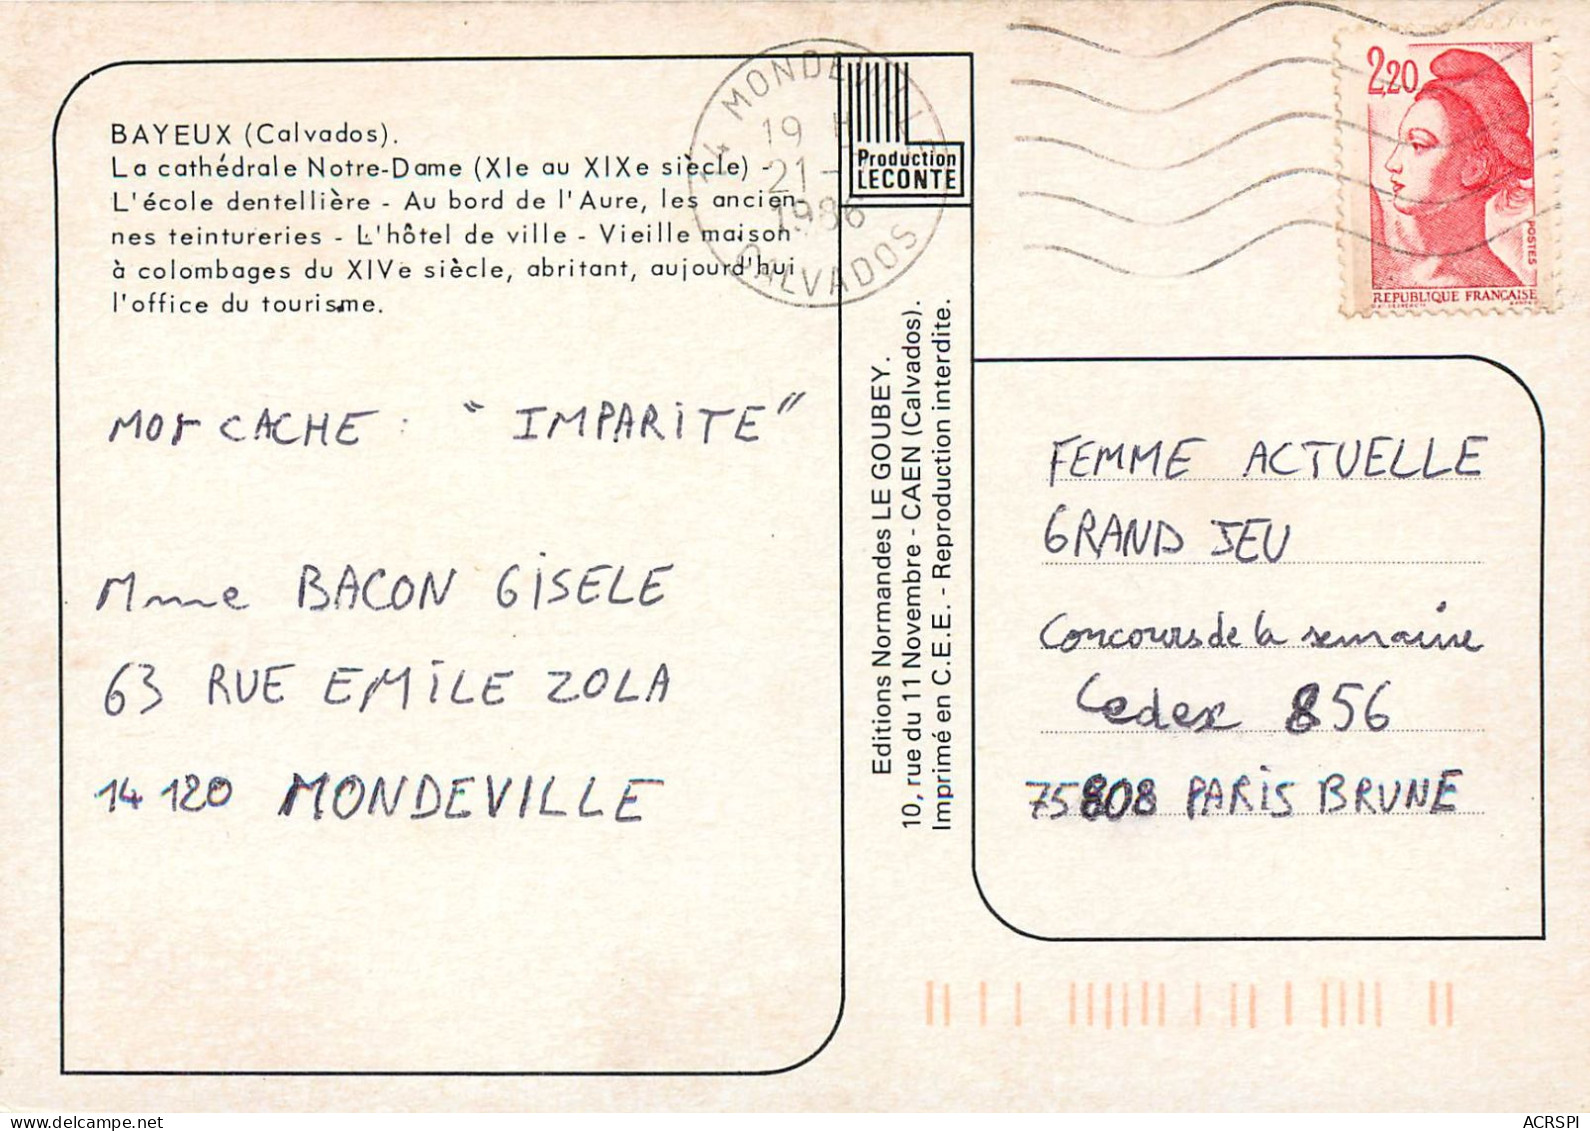 BAYEUX (Calvados).
La cathédrale Notre-Dame (XIe au XIXe siècle) -
L'école dentellière - Au bord de l'Aure, les ancien-
nes teintureries - L'hôtel de ville - Vieille maison
à colombages du XIVe siècle, abritant, aujourd'hui
l'office du tourisme.
MOT CACHE : "IMPARITE"
Mme BACON GISELE
63 RUE EMILE ZOLA
14120 MONDEVILLE
14 MONDEVILLE
19 H
21-
1986
CALVADOS
Production
LECONTE
Editions Normandes LE GOUBEY.
10, rue du 11 Novembre - CAEN (Calvados).
Imprimé en C.E.E. - Reproduction interdite.
2,20
POSTES
REPUBLIQUE FRANÇAISE
FEMME ACTUELLE
GRAND JEU
Concours de la semaine
Cedex 856
75808 PARIS BRUNE
ACRSPI